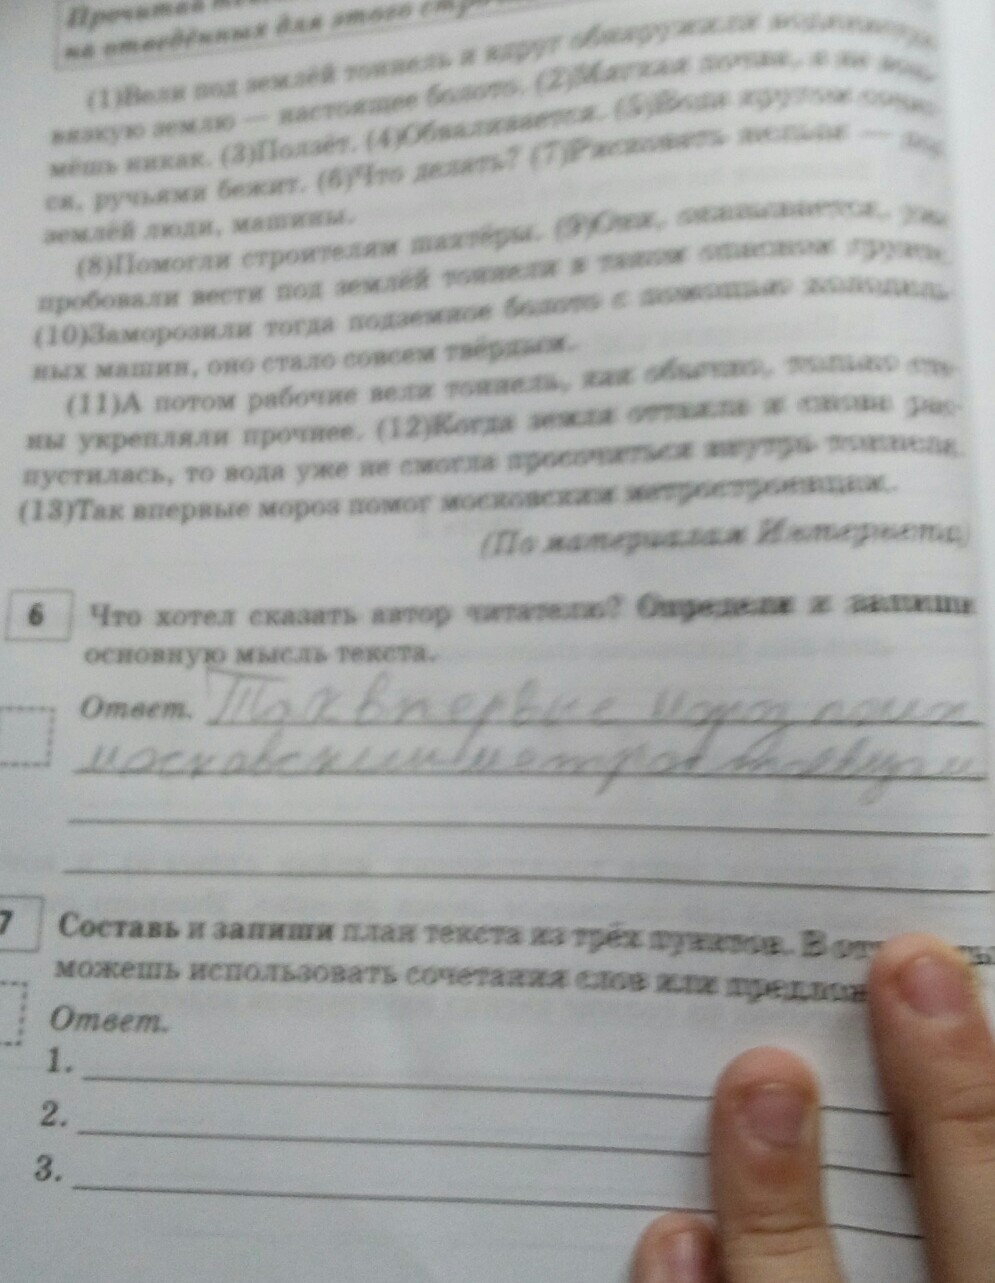 Прочитай
на отведённых для этого
(1)Вели под землёй тоннель и вдруг обнаружили
вязкую землю — настоящее болото. (2)Мягкая почва, а не
мёшь никак. (3)Ползёт. (4)Обваливается. (5)Вода кругом
ся, ручьями бежит. (6)Что делать? (7)Рисковать нельзя —
землёй люди, машины.
(8)Помогли строителям шахтёры. (9)Они, оказывается, уже
пробовали вести под землёй тоннели в таком опасном грунте.
(10)Заморозили тогда подземное болото с помощью холодиль-
ных машин, оно стало совсем твёрдым.
(11)А потом рабочие вели тоннель, как обычно, только сте-
ны укрепляли прочнее. (12)Когда земля оттаяла и снова рас-
пустилась, то вода уже не смогла просочиться внутрь тоннеля.
(13)Так впервые мороз помог московским метростроевцам.
(По материалам Интернета)
6 Что хотел сказать автор читателю? Определи и запиши
основную мысль текста.
Ответ. Так впервые мороз помог
московским
7 Составь и запиши план текста из трёх пунктов. В
можешь использовать сочетания слов или
Ответ.
1.
2.
3.